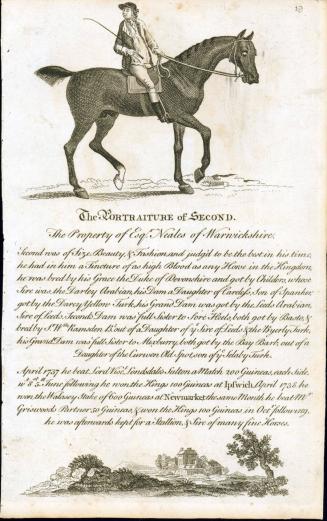 The PORTRAITURE of SECOND.
The Property of Esq.r Neales of Warwickshire.
Second was of Size, Beauty, & Fashion, and judg'd to be the best in his time,
he had in him a Tincture of as high Blood as any Horse in the Kingdom,
he was bred by his Grace the Duke of Devonshire and got by Childers, whose
Sire was the Darley Arabian, his Dam a Daughter of Careless, Son of Spanker
got by the Darcy Yellow Turk, his Grand Dam was got by the Leeds Arabian,
Sire of Leeds. Seconds Dam was full Sister to Sore Heels, both got by Basto, &
bred by S.r W.m Ramsden B.t out of a Daughter of y.e Sire of Leeds & the Byerly Turk,
his Grand Dam was full Sister to Maxbury, both got by the Bay Barb, out of a
Daughter of the Curwen Old Spot, son of y.e Selaby Turk.
April 1737 he beat Lord Visc.t Lonsdale's Sultan a Match 200 Guineas, each Side,
8 5 June following he won the Kings 100 Guineas at Ipswich, April 1738 he
won the Wallasey Stake of 600 Guineas at Newmarket the same Month he beat M.r
Griswoods Partner 50 Guineas, & won the Kings 100 Guineas in Oct.r following,
he was afterwards kept for a Stallion, & Sire of many fine Horses.